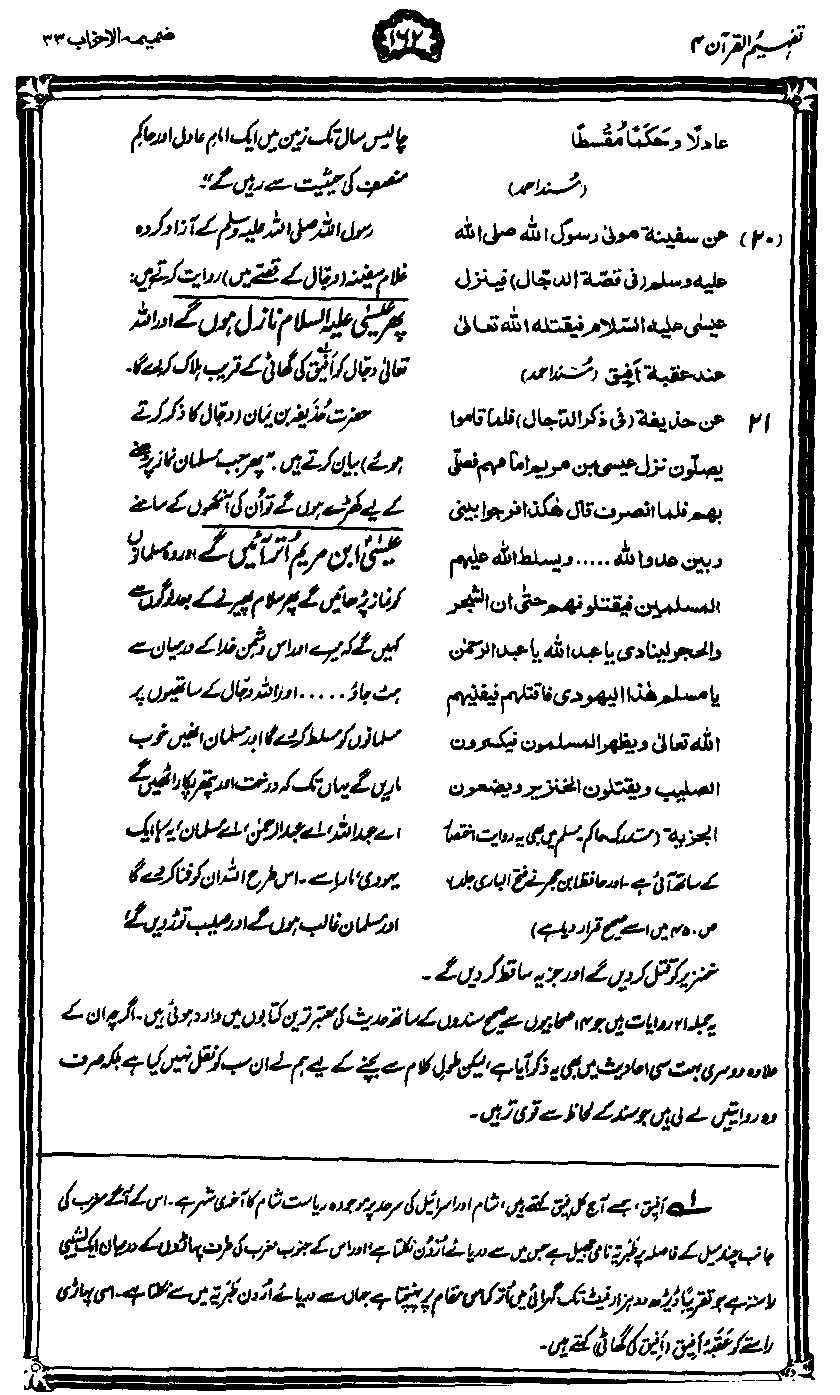 تفہیم القرآن ۴
۱۶۲
ضمیمہ الاحزاب ۳۳
عادلا وحکما مُقسطا
(مُسند احمد)
(۲۰) عن سفینة مولیٰ رسول الله صلی الله
علیه وسلم (فی قصّة الدجّال) فینزل
عیسٰی علیه السّلام فیقتله الله تعالیٰ
عند عقبة اَفِیق (مُسند احمد)
۲۱ عن حذیفة (فی ذکر الدّجال) فلما قاموا
یصلّون نزل عیسی ابن مریم امامهم فصلّی
بهم فلما انصرف قال هٰکذا افرجوا بینی
وبین عدو الله ..... ویسلط الله علیهم
المسلمین فیقتلونهم حتّٰی ان الشجر
والحجر لینادی یا عبد الله یا عبد الرحمٰن
یا مسلم هٰذا الیهودی فاقتلهم فیفنیهم
الله تعالیٰ ویظهر المسلمون فیکسرون
الصلیب ویقتلون الخنزیر ویضعون
الجزیة (مستدرک حاکم۔ مسلم میں بھی یہ روایت اختصار
کے ساتھ آئی ہے۔ اور حافظ ابن حجر نے فتح الباری جلد ۶
ص ۴۵۰ میں اسے صحیح قرار دیا ہے)
چالیس سال تک زمین میں ایک امام عادل اور حاکم
منصف کی حیثیت سے رہیں گے"۔
رسول اللہ صلی اللہ علیہ وسلم کے آزاد کردہ
غلام سفینہ (دجال کے قصّے میں) روایت کرتے ہیں:
پھر عیسٰی علیہ السلام نازل ہوں گے اور اللہ
تعالیٰ دجّال کو اَفیق کی گھاٹی کے قریب ہلاک کر دے گا۔
حضرت حُذیفہ بن یمان (دجّال کا ذکر کرتے
ہوئے) بیان کرتے ہیں: "پھر جب مسلمان نماز پڑھنے
کے لیے کھڑے ہوں گے تو اُن کی آنکھوں کے سامنے
عیسٰیؑ ابن مریم اُتر آئیں گے اور وہ مسلمانوں
کو نماز پڑھائیں گے پھر سلام پھیرنے کے بعد لوگوں سے
کہیں گے کہ میرے اور اس دشمنِ خدا کے درمیان سے
ہٹ جاؤ ..... اور اللہ دجّال کے ساتھیوں پر
مسلمانوں کو مسلط کر دے گا اور مسلمان انھیں خوب
ماریں گے یہاں تک کہ درخت اور پتھر پکار اٹھیں گے
اے عبداللہ، اے عبدالرحمٰن، اے مسلمان، یہ رہا ایک
یہودی، مار اسے۔ اس طرح اللہ ان کو فنا کر دے گا
اور مسلمان غالب ہوں گے اور صلیب توڑ دیں گے،
خنزیر کو قتل کر دیں گے اور جزیہ ساقط کر دیں گے۔
یہ جملہ ۲۱ روایات ہیں جو ۱۴ صحابیوں سے صحیح سندوں کے ساتھ حدیث کی معتبر ترین کتابوں میں وارد ہوئی ہیں۔ اگرچہ ان کے
علاوہ دوسری بہت سی احادیث میں بھی یہ ذکر آیا ہے، لیکن طولِ کلام سے بچنے کے لیے ہم نے ان سب کو نقل نہیں کیا ہے بلکہ صرف
وہ روایتیں لے لی ہیں جو سند کے لحاظ سے قوی تر ہیں۔
لہ اَفِیق، جسے آج کل فیق کہتے ہیں، شام اور اسرائیل کی سرحد پر موجودہ ریاست شام کا آخری شہر ہے۔ اس کے آگے مغرب کی
جانب چند میل کے فاصلہ پر طَبَریّہ نامی جھیل ہے جس میں سے دریائے اُردُن نکلتا ہے، اور اس کے جنوب مغرب کی طرف پہاڑوں کے درمیان ایک نشیبی
راستہ ہے جو تقریباً ڈیڑھ دو ہزار فیٹ تک گہرائی میں اُتر کر اس مقام پر پہنچتا ہے جہاں سے دریائے اُردن طَبَریّہ میں سے نکلتا ہے۔ اسی پہاڑی
راستے کو عَقَبۂ اَفیق (اَفیق کی گھاٹی) کہتے ہیں۔